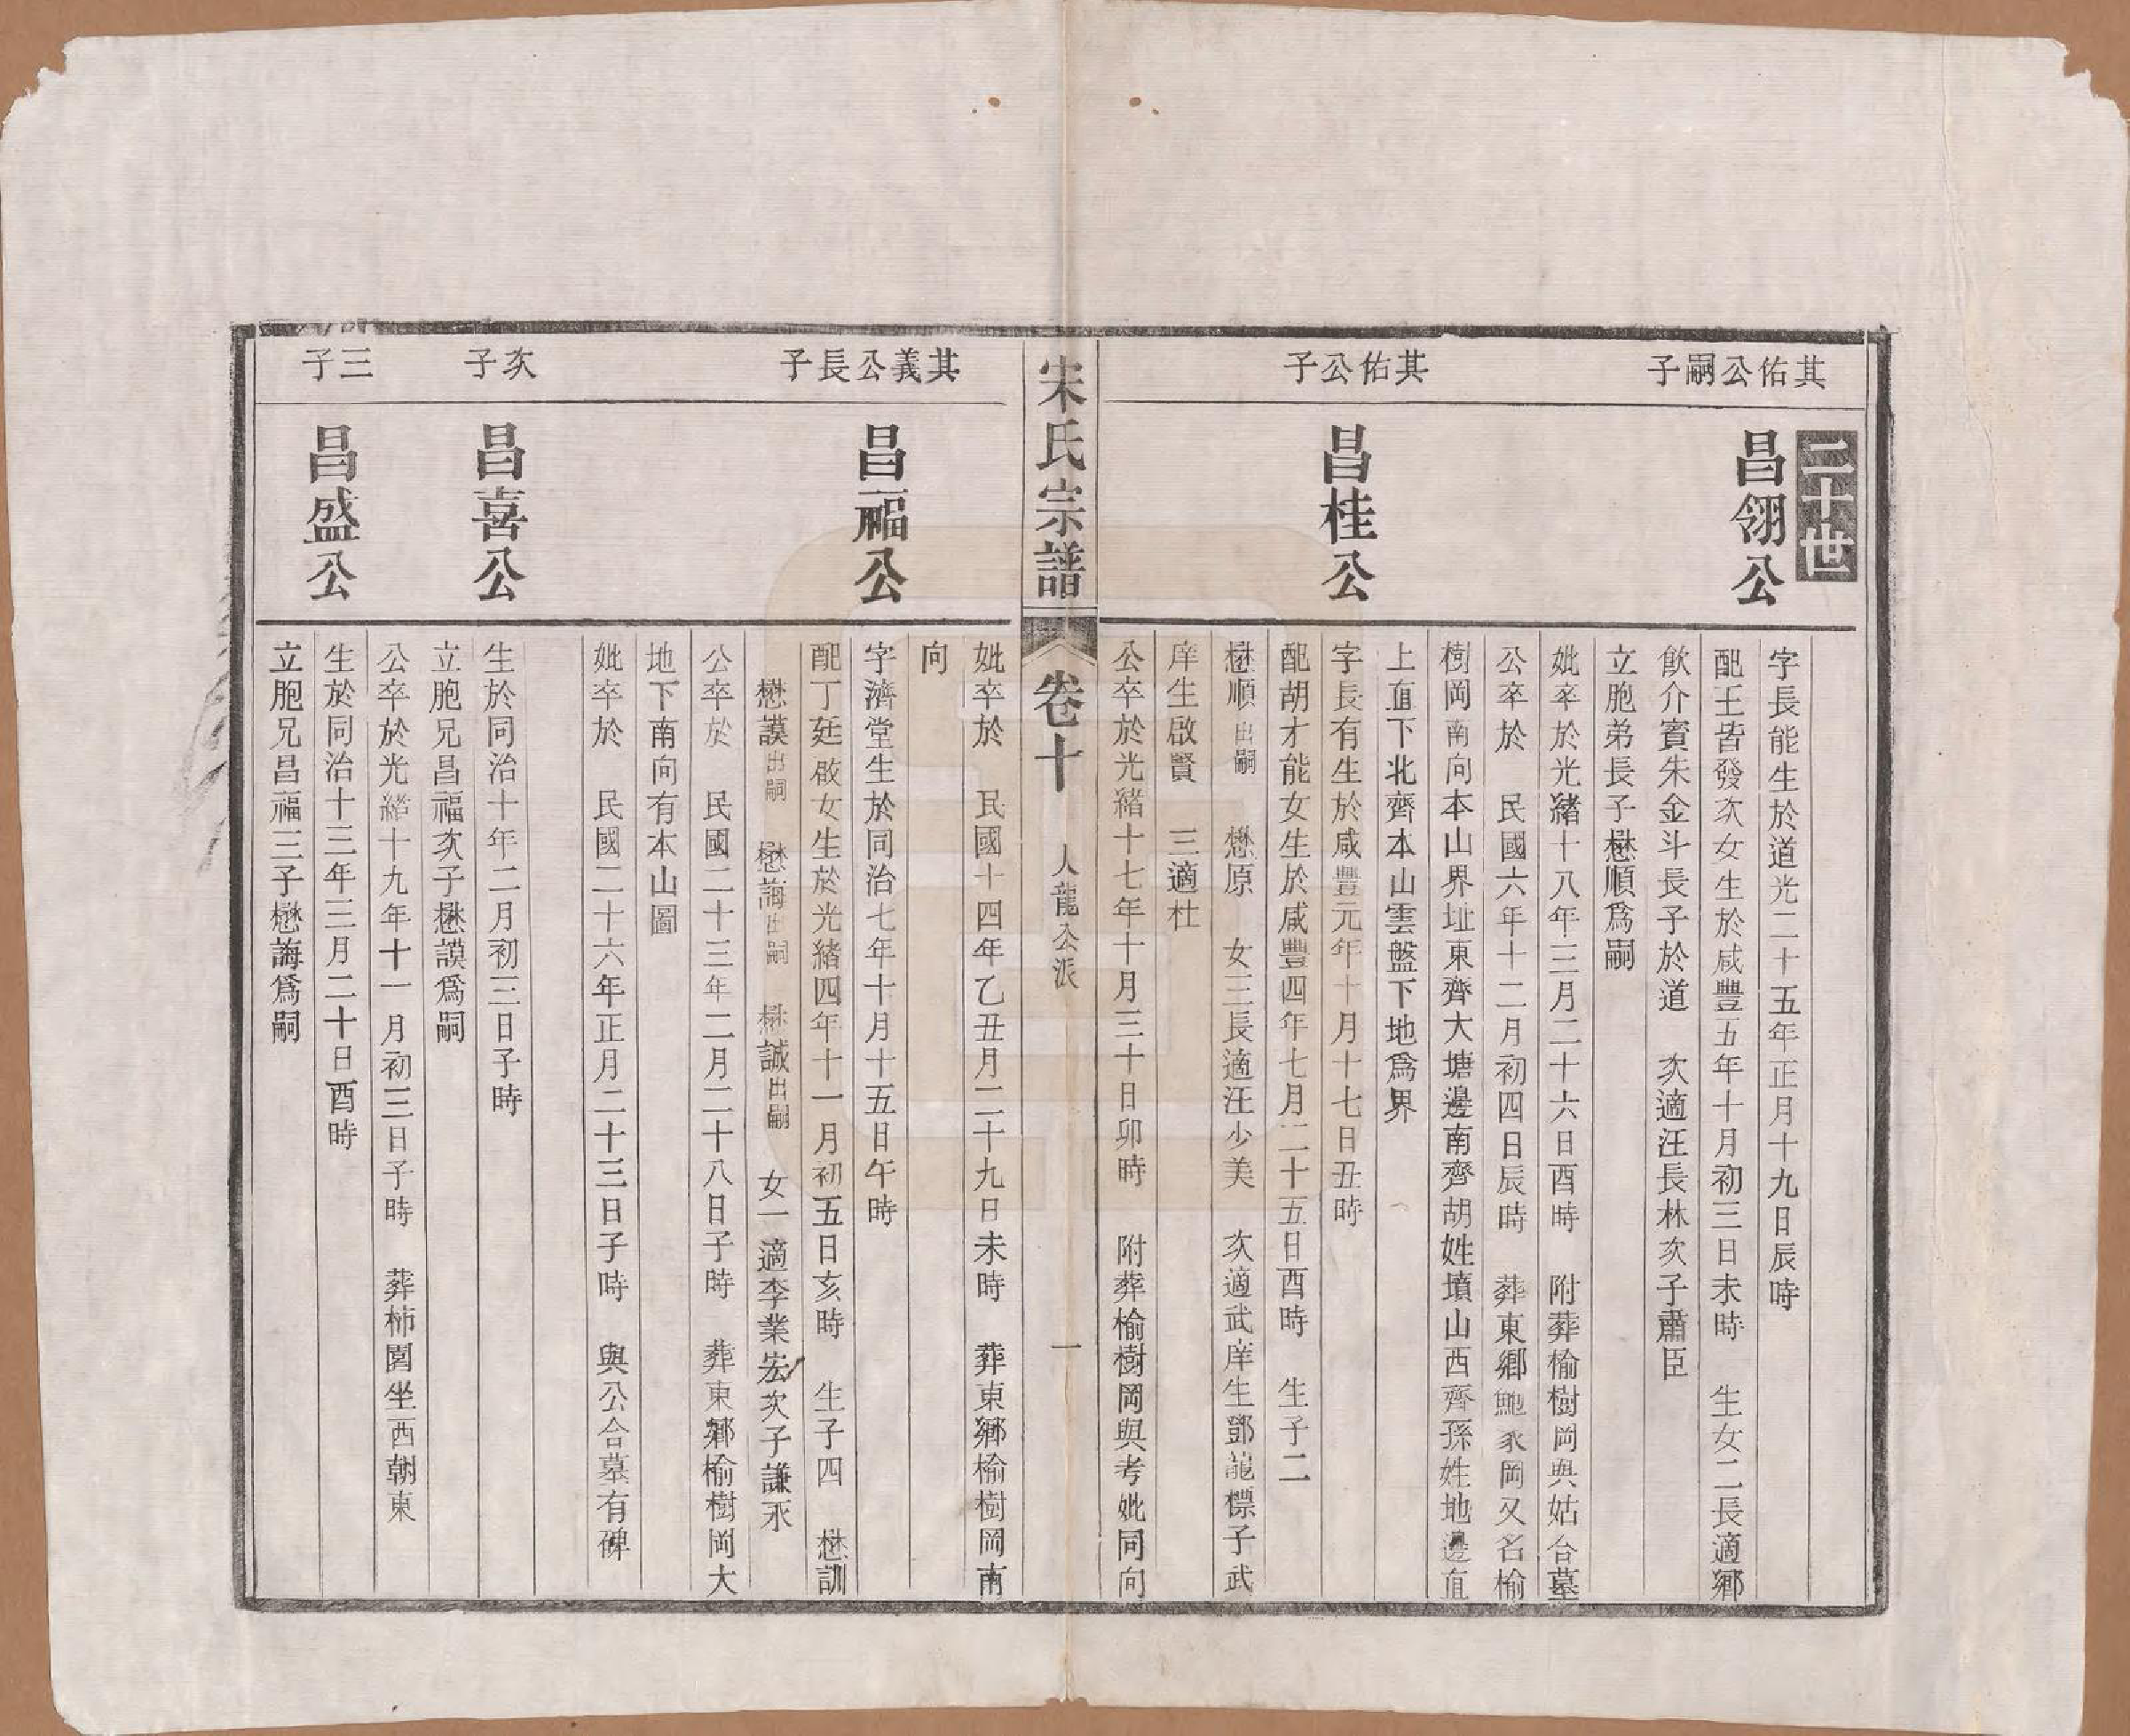 二十世
其佑公嗣子
昌翎公
字長能生於道光二十五年正月十九日辰時
配王皆發次女生於咸豐五年十月初三日未時　生女二長適鄉
飲介賓朱金斗長子於道　次適汪長林次子肅臣
立胞弟長子懋順爲嗣
妣卒於光緒十八年三月二十六日酉時　附葬榆樹岡與姑合墓
公卒於　民國六年十二月初四日辰時　葬東鄉鮑家岡又名榆
樹岡南向本山界址東齊大塘邊南齊胡姓墳山西齊孫姓地邊直
上直下北齊本山雲盤下地爲界
其佑公子
昌桂公
字長有生於咸豐元年十月十七日丑時
配胡才能女生於咸豐四年七月二十五日酉時　生子二
懋順出嗣　懋原　女三長適汪少美　次適武庠生鄧龍標子武
庠生啟賢　三適杜
公卒於光緒十七年十月三十日卯時　附葬榆樹岡與考妣同向
宋氏宗譜　卷十　人龍公派　一
妣卒於　民國十四年乙丑月二十九日未時　葬東鄉榆樹岡南
向
其義公長子
昌福公
字濟堂生於同治七年十月十五日午時
配丁廷啟女生於光緒四年十一月初五日亥時　生子四　懋訓
懋謨出嗣　懋誨出嗣　懋誠出嗣　女一適李業宏次子謙永
公卒於　民國二十三年二月二十八日子時　葬東鄉榆樹岡大
地下南向有本山圖
妣卒於　民國二十六年正月二十三日子時　與公合墓有碑
次子
昌喜公
生於同治十年二月初三日子時
立胞兄昌福次子懋謨爲嗣
公卒於光緒十九年十一月初三日子時　葬柿園坐西朝東
三子
昌盛公
生於同治十三年三月二十日酉時
立胞兄昌福三子懋誨爲嗣